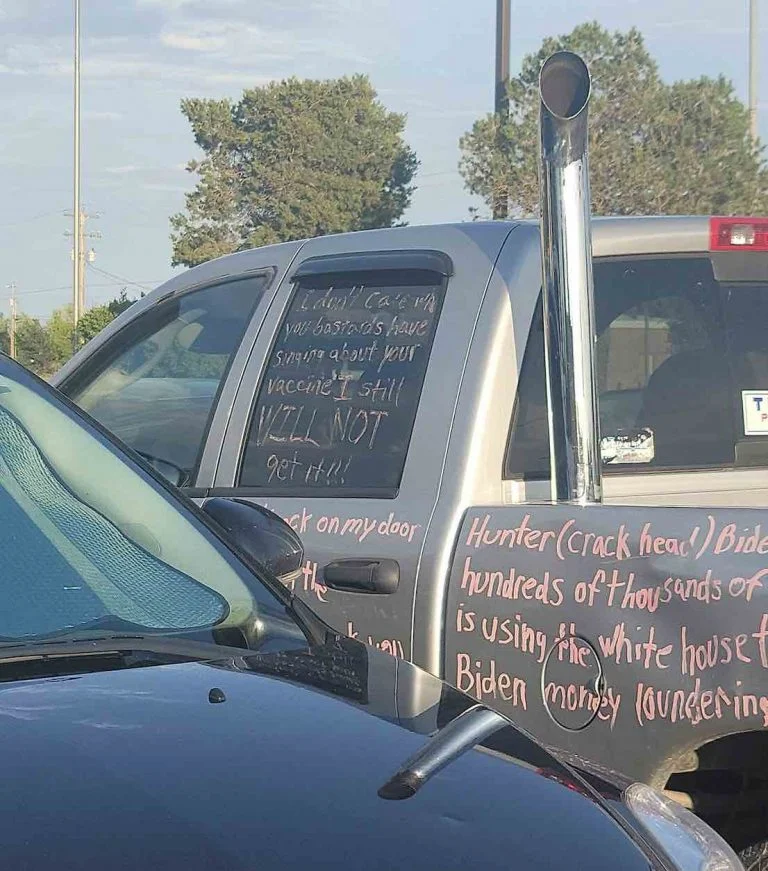 I don't care
you bastards have
singing about your
vaccine I still
WILL NOT
get it!!!
on my door
the
Hunter (crack head) Bide
hundreds of thousands of
is using the White house t
Biden money loundering
T
P